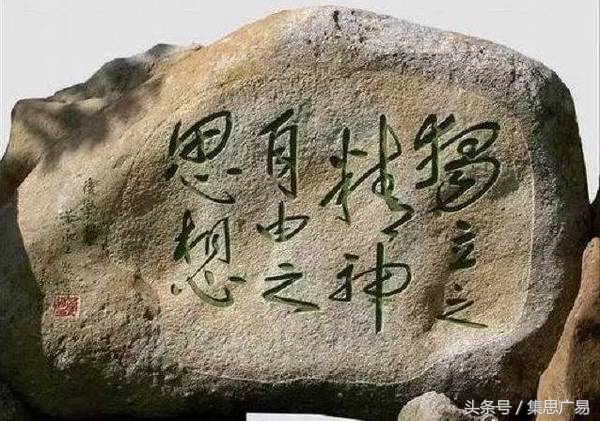 獨立之
精神
自由之
思想
头条号／集思广易